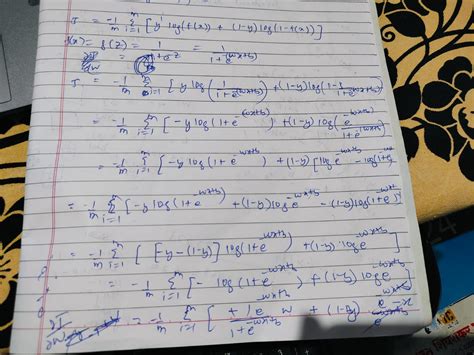 J = -1/m Σ_{i=1}^{m} [y log(f(x)) + (1-y) log(1-f(x))]
f(x) = g(z) = 1/(1+e^{-z}) = 1/(1+e^{-(wx+b)})
∂J/∂w
J = -1/m Σ_{i=1}^{m} [y log(1/(1+e^{-(wx+b)})) + (1-y) log(1-1/(1+e^{-(wx+b)}))]
= -1/m Σ_{i=1}^{m} [-y log(1+e^{-(wx+b)}) + (1-y) log(e^{-(wx+b)}/(1+e^{-(wx+b)}))]
= -1/m Σ_{i=1}^{m} [-y log(1+e^{-wx+b}) + (1-y)[log e^{-wx+b} - log(1+e^{-wx+b}
= -1/m Σ_{i=1}^{m} [-y log(1+e^{-wx+b}) + (1-y) log e^{-wx+b} - (1-y) log(1+e^{-wx+b})]
= -1/m Σ_{i=1}^{m} [[-y-(1-y)] log(1+e^{-wx+b}) + (1-y) log e^{-wx+b}]
= -1/m Σ_{i=1}^{m} [-log(1+e^{-wx+b}) + (1-y) log e^{-wx+b}]
∂J/∂w = -1/m Σ_{i=1}^{m} [